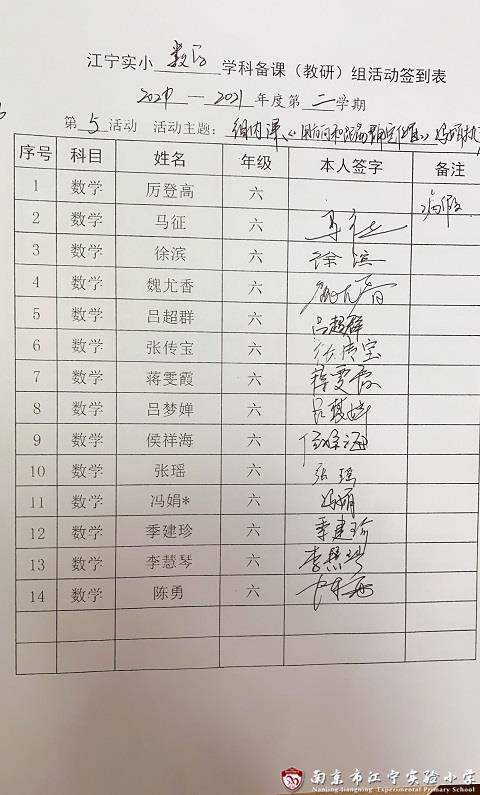 江宁实小 数学 学科备课（教研）组活动签到表
2020—2021年度第 二 学期
第 5 活动 活动主题：组内课、《用方向和距离确定位置》冯娟执
序号 科目 姓名 年级 本人签字 备注
1 数学 厉登高 六 病假
2 数学 马征 六 马征
3 数学 徐滨 六 徐滨
4 数学 魏尤香 六 魏尤香
5 数学 吕超群 六 吕超群
6 数学 张传宝 六 张传宝
7 数学 蒋雯霞 六 蒋雯霞
8 数学 吕梦婵 六 吕梦婵
9 数学 侯祥海 六 侯祥海
10 数学 张瑶 六 张瑶
11 数学 冯娟* 六 冯娟
12 数学 季建珍 六 季建珍
13 数学 李慧琴 六 李慧琴
14 数学 陈勇 六
南京市江宁实验小学
Nanjing Jiangning Experimental Primary School